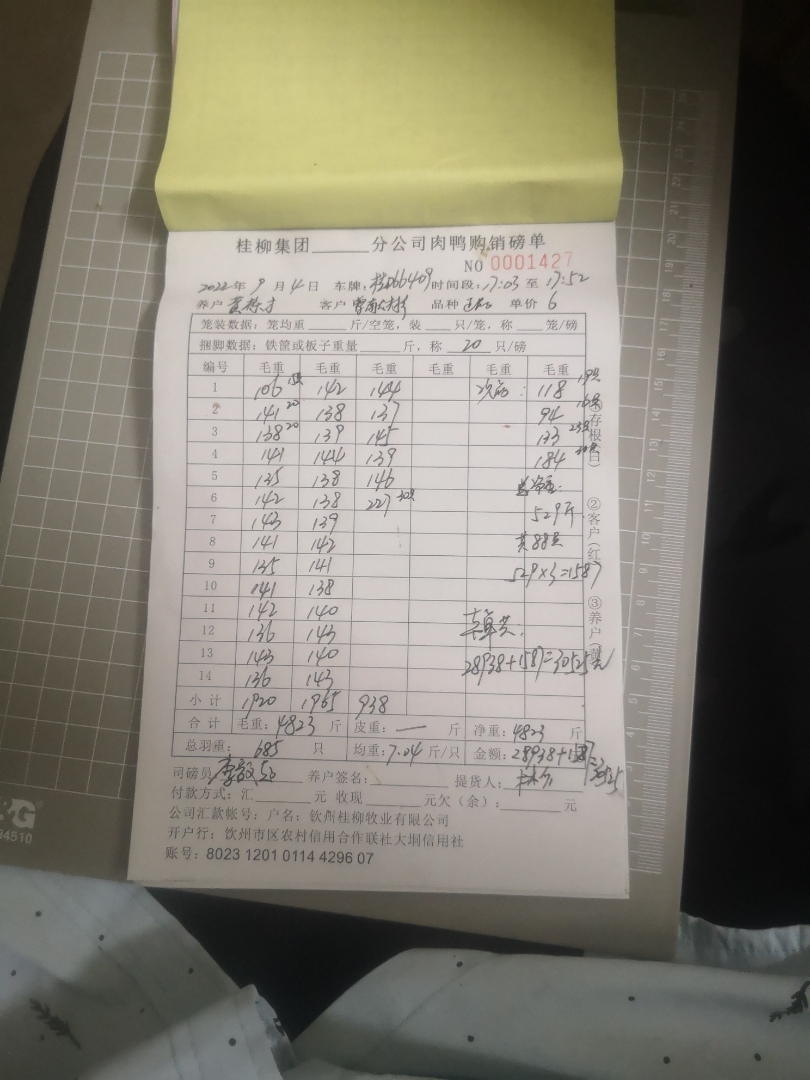 桂柳集团______分公司肉鸭购销磅单
NO 0001427
2022年 9 月 4 日 车牌: 时间段: 17:03 至 17:52
养户 客户 品种 单价 6
笼装数据: 笼均重 ______ 斤/空笼, 装 ____ 只/笼, 称 ____ 笼/磅
捆脚数据: 铁筐或板子重量 ______ 斤, 称 20 只/磅
编号 毛重 毛重 毛重 毛重 毛重 毛重
1 106 142 144 次品: 118 19只
2 141 20 138 137 94 16只
3 138 20 139 145 133 23只
4 141 144 139 184 30只
5 135 138 146
6 142 138 227 32只 529斤
7 143 139
8 141 142 共88只
9 135 141 529×3=1587
10 141 138
11 142 140
12 136 143
13 143 140 28938+1587=30525元
14 136 143
小计 1920 1965 938
合计 毛重: 4823 斤 皮重: — 斤 净重: 4823 斤
总羽重: 685 只 均重: 7.04 斤/只 金额: 28938+1587=30525
司磅员 养户签名: 提货人:
付款方式: 汇______元 收现______元欠(余): ______元
公司汇款帐号: 户名: 钦州桂柳牧业有限公司
开户行: 钦州市区农村信用合作联社大垌信用社
账号: 8023 1201 0114 4296 07
①存根(白) ②客户(红) ③养户(黄)
34510